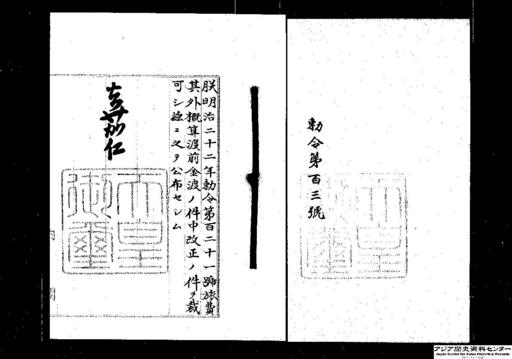 勅令第百三號
天皇
御璽
朕明治二十二年勅令第百二十一號旅費
其外概算渡前金渡ノ件中改正ノ件ヲ裁
可シ茲ニ之ヲ公布セシム
嘉仁
天皇
御璽
アジア歴史資料センター
Japan Center for Asian Historical Records